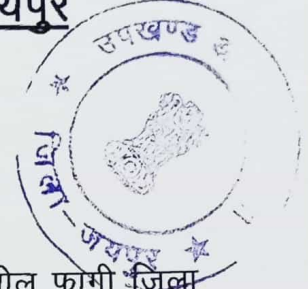 यपुर
उपखण्ड
जिला-जयपुर
ील फागी जिला